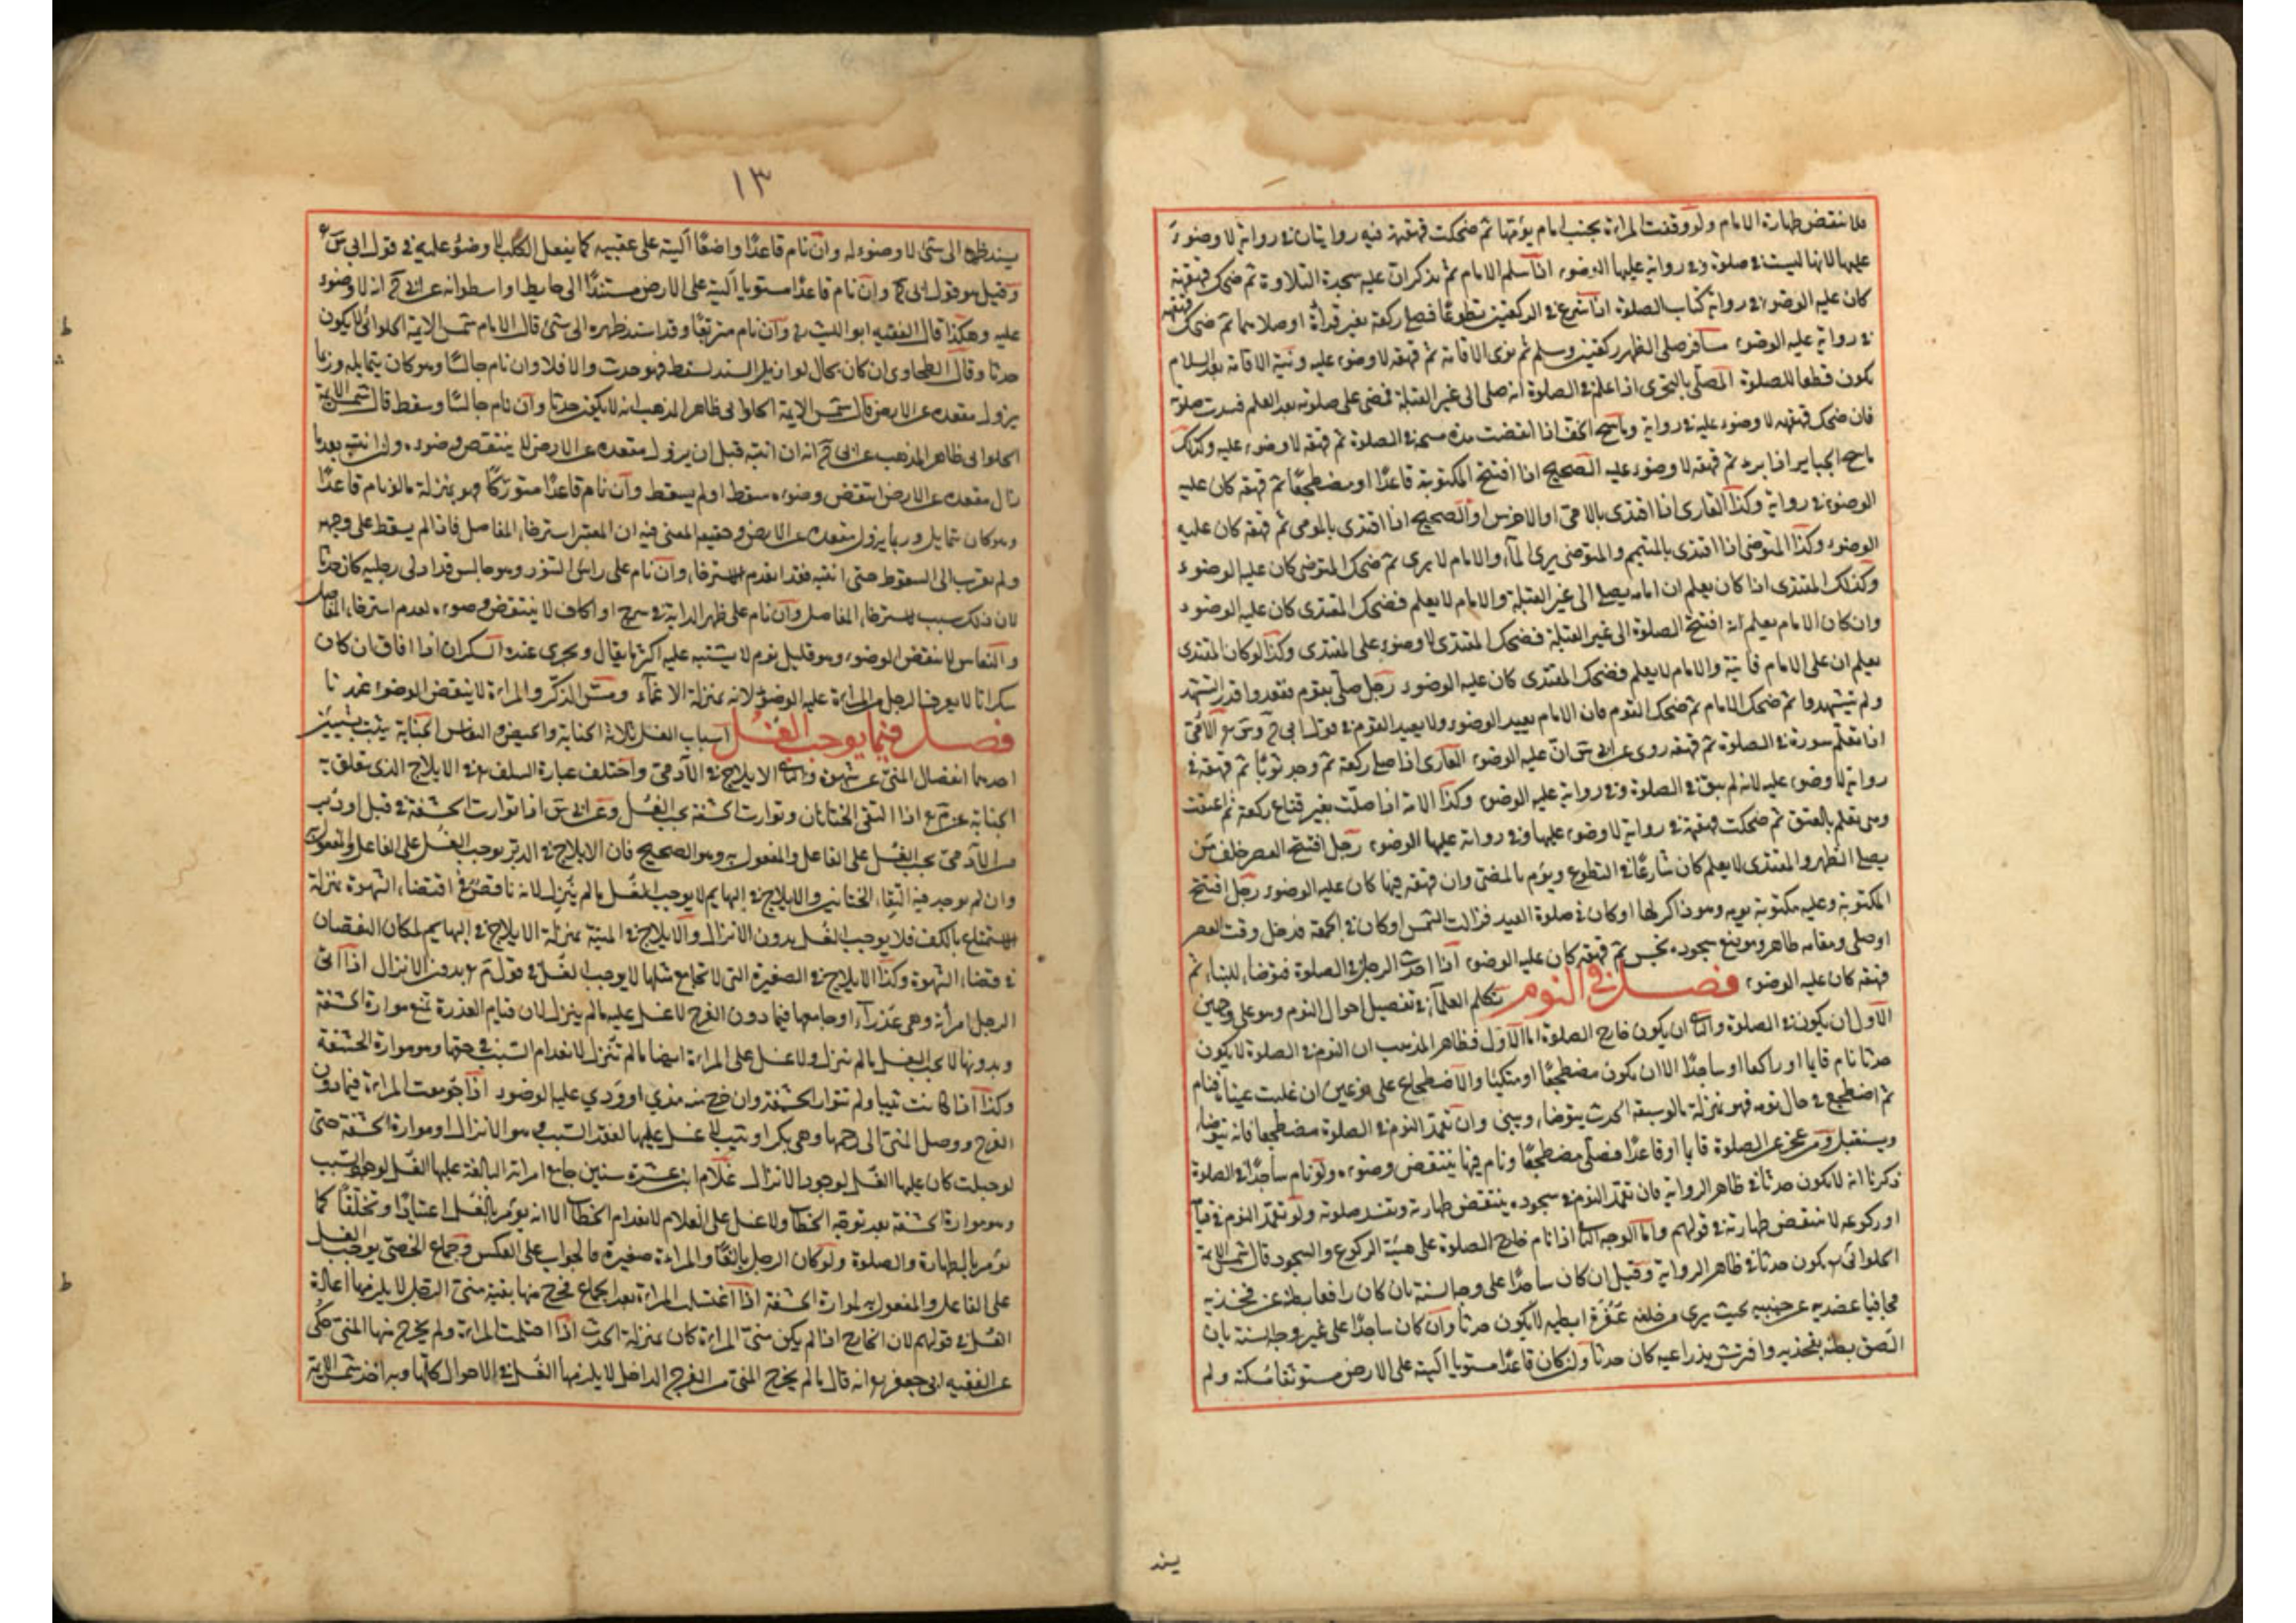 فلا ينتقض طهارة الامام ولو وقفت المراءة بجنب امام يؤمها ثم ضحكت قهقهة فيه روايتان في رواية لا وضوء
عليها لانها ليست في صلوة وفي رواية عليها الوضوء اذا سلم الامام ثم تذكر ان عليه سجدة التلاوة ثم ضحك قهقهة
كان عليه الوضوء في رواية كتاب الصلوة اذا شرع في الركعتين تطوعًا فصلى ركعة بغير قرأة او صلاهما ثم ضحك قهقهه
في رواية عليه الوضوء مسافر صلى الظهر ركعتين وسلم ثم نوى الاقامة ثم قهقه لا وضوء عليه ونية الاقامة بعد السلام
يكون قطعا للصلوة المصلى بالتحرى اذا علم في الصلوة انه صلى الى غير القبلة فمضى على صلوته بعد العلم فسدت صلوته
فان ضحك قهقهه لا وضوء عليه في رواية وماسح الخف اذا انقضت مدة مسحه في الصلوة ثم قهقه لا وضوء عليه وكذلك
ماسح الجباير اذا برء ثم قهقه لا وضوء عليه الصحيح اذا افتتح المكتوبة قاعدًا او مضطجعًا ثم قهقه كان عليه
الوضوء في رواية وكذا القارى اذا اقتدى بالامى او الاخرس او الصحيح اذا اقتدى بالمومى ثم قهقه كان عليه
الوضوء وكذا المتوضى اذا اقتدى بالمتيمم والمتوضى يرى الماء والامام لا يرى ثم ضحك المتوضى كان عليه الوضوء
وكذلك المقتدى اذا كان يعلم ان امامه يصلى الى غير القبلة والامام لا يعلم فضحك المقتدى كان عليه الوضوء
وان كان الامام يعلم انه افتتح الصلوة الى غير القبلة فضحك المقتدى لا وضوء على المقتدى وكذا لو كان المقتدى
يعلم ان على الامام فايتة والامام لا يعلم فضحك المقتدى كان عليه الوضوء رجل صلى بقوم فقعدوا قدر التشهد
ولم يتشهدوا ثم ضحك الامام ثم ضحك القوم فان الامام يعيد الوضوء ولا يعيد القوم في قول ابى ح وس الامى
اذا تعلم سورة في الصلوة ثم قهقه روى عن ابى س ان عليه الوضوء العارى اذا صلى ركعة ثم وجد ثوبًا ثم قهقه في
رواية لا وضوء عليه لانه لم يبق في الصلوة وفي رواية عليه الوضوء وكذا الامة اذا صلت بغير قناع ركعة ثم اعتقت
وهى تعلم بالعتق ثم ضحكت قهقهة في رواية لا وضوء عليها وفي رواية عليها الوضوء رجل افتتح العصر خلف من
يصلى الظهر والمقتدى لا يعلم كان شارعًا في التطوع ويؤم بالمضى وان قهقه فيها كان عليه الوضوء رجل افتتح
المكتوبة وعليه مكتوبة يومه وهو ذاكر لها او كان في صلوة العيد فزالت الشمس او كان في الجمعة فدخل وقت العصر
او صلى ومقامه طاهر وموضع سجوده نجس ثم قهقه كان عليه الوضوء اذا احدث الرجل في الصلوة فتوضا للبناء ثم
قهقه كان عليه الوضوء فصل في النوم تكلم العلماء في تفصيل احوال النوم وهو على وجهين
الاول ان يكون في الصلوة والثانى ان يكون خارج الصلوة اما الاول فظاهر المذهب ان النوم في الصلوة لا يكون
حدثا نام قايما او راكعا او ساجدًا الا ان يكون مضطجعًا او متكئا والاضطجاع على نوعين ان غلبت عيناه فنام
ثم اضطجع في حال نومه فهو بمنزلة ما لو سبقه الحدث يتوضاء ويبنى وان تعمد النوم في الصلوة مضطجعا فانه يتوضاء
ويستقبل ومن عجز عن الصلوة قايما او قاعدًا فصلى مضطجعًا ونام فيها ينتقض وضوءه ولو نام ساجدًا في الصلوة
ذكرنا انه لا يكون حدثا في ظاهر الرواية فان تعمد النوم في سجوده ينتقض طهارته وتفسد صلوته ولو تعمد النوم في قيامه
او ركوعه لا ينتقض طهارته في قولهم واما الوجه الثانى اذا نام خارج الصلوة على هيئة الركوع والسجود قال شمس الايمة
الحلوانى يكون حدثا في ظاهر الرواية وقيل ان كان ساجدًا على وجه السنة بان كان رافعا بطنه عن فخذيه
مجافيا عضديه عن جنبيه بحيث يرى من خلفه عفرة ابطيه لا يكون حدثا وان كان ساجدًا على غير وجه السنة بان
الصق بطنه بفخذيه وافترش بذراعيه كان حدثا ولو كان قاعدًا مستويا اليته على الارض مستوثقا مسكنه ولم
يسند
١٣
يسند ظهره الى شئ لا وضوء له وان نام قاعدًا واضعًا اليته على عقبيه كما يفعل الكلب لا وضوء عليه في قول ابى س
وقيل هو قول ابى ح وان نام قاعدًا مستويا اليته على الارض مستندًا الى حايط او اسطوانه عن ابى ح انه لا وضوء
عليه وهكذا قال الفقيه ابو الليث وان نام متربعًا وقد اسند ظهره الى شئ قال الامام شمس الايمة الحلوانى لا يكون
حدثا وقال الطحاوى ان كان بحال لو ازيل السند لسقط فهو حدث والا فلا وان نام جالسًا وهو كان يتمايل وربما
يزول مقعده عن الارض قال شمس الايمة الحلوانى ظاهر المذهب انه لا يكون حدثا وان نام جالسًا وسقط قال شمس الايمة
الحلوانى ظاهر المذهب عن ابى ح انه ان انتبه قبل ان يزول مقعده عن الارض لا ينتقض وضوءه وان انتبه بعد ما
زال مقعده عن الارض انتقض وضوءه سقط او لم يسقط وان نام قاعدًا متوركًا فهو بمنزلة ما لو نام قاعدًا
وهو كان يتمايل وربما يزول مقعده عن الارض وحقيقة المعنى فيه ان المعتبر استرخاء المفاصل فاذا لم يسقط على وجهه
ولم يقرب الى السقوط حتى انتبه فقد انعدم الاسترخاء وان نام على راس التنور وهو جالس قد ادلى رجليه كان حدثا
لان ذلك سبب لاسترخاء المفاصل وان نام على ظهر الدابة في سرج او اكاف لا ينتقض وضوءه لعدم استرخاء المفاصل
والنعاس لا ينقض الوضوء وهو قليل نوم لا يشتبه عليه اكثر ما يقال ويجرى عنده السكران اذا افاق ان كان
سكرانا لا يعرف الرجل من المراءة عليه الوضوء لانه بمنزلة الاغماء ومس الذكر والمراءة لا ينقض الوضوء عندنا
فصل فيما يوجب الغسل اسباب الغسل ثلاثة الجنابة والحيض والنفاس الجنابة يثبت بشيئين
احدهما انفصال المنى عن شهوة والثانى الايلاج في الآدمى واختلف عبارة السلف في الايلاج الذى يتعلق به
الجنابة عن م اذا التقى الختانان وتوارت الحشفة يجب الغسل وعن ابى س اذا توارت الحشفة في قبل او دبر
من الآدمى يجب الغسل على الفاعل والمفعول به وهو الصحيح فان الايلاج في الدبر يوجب الغسل على الفاعل والمفعول به
وان لم يوجد فيه التقاء الختانين والايلاج في البهايم لا يوجب الغسل ما لم ينزل لانه ناقص في اقتضاء الشهوة بمنزلة
الاستمتاع بالكف فلا يوجب الغسل بدون الانزال والايلاج في الميتة بمنزلة الايلاج في البهايم لمكان النقصان
في قضاء الشهوة وكذا الايلاج في الصغيرة التى لا تجامع مثلها لا يوجب الغسل في قول م بدون الانزال اذا اتى
الرجل امرأته وهى عذراء او جامعها فيما دون الفرج لا غسل عليه ما لم ينزل لان قيام العذرة تمنع موارة الحشفة
وبدونها لا يجب الغسل ما لم ينزل ولا غسل على المراءة ايضا ما لم تنزل لانعدام السبب في حقها وهو موارة الحشفة
وكذا اذا كانت ثيبا ولم تتوار الحشفة وان خرج منه مذي او ودي عليه الوضوء اذا جومعت المراءة فيما دون
الفرج ووصل المنى الى رحمها وهى بكر او ثيب لا غسل عليها لفقد السبب وهو الانزال او موارة الحشفة حتى
لو حبلت كان عليها الغسل لوجود الانزال غلام ابن عشرة سنين جامع امراته البالغة عليها الغسل لوجود السبب
وهو موارة الحشفة بعد توجه الخطاب ولا غسل على الغلام لانعدام الخطاب الا انه يؤمر بالغسل اعتيادًا وتخلقًا كما
يؤمر بالطهارة والصلوة ولو كان الرجل بالغًا والمراءة صغيرة فالجواب على العكس وجماع الخصى يوجب الغسل
على الفاعل والمفعول به لموارة الحشفة اذا اغتسلت المراءة بعد الجماع فخرج منها بقية منى الرجل لا يلزمها اعادة
الغسل في قولهم لان الخارج اذا لم يكن منى المراءة كان بمنزلة الحدث اذا احتلمت المراءة ولم يخرج منها المنى حكى
عن الفقيه ابى جعفر انه قال ما لم يخرج المنى من الفرج الداخل لا يلزمها الغسل في الاحوال كلها وبه اخذ شمس الايمة